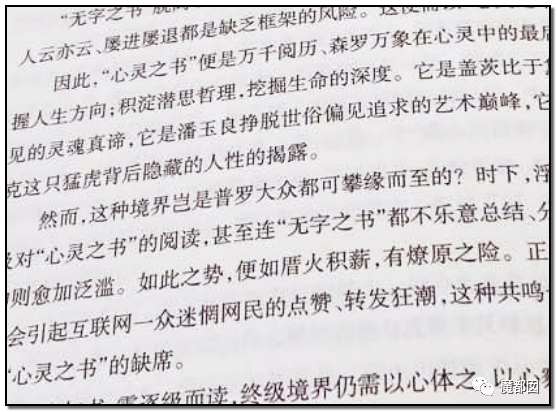 “无字之书”
人云亦云、屡进屡退都是缺乏框架的风险。
因此，“心灵之书”便是万千阅历、森罗万象在心灵中的最
握人生方向；积淀潜思哲理，挖掘生命的深度。它是盖茨比于
见的灵魂真谛，它是潘玉良挣脱世俗偏见追求的艺术巅峰，它
克这只猛虎背后隐藏的人性的揭露。
然而，这种境界岂是普罗大众都可攀缘而至的？时下，浮
对“心灵之书”的阅读，甚至连“无字之书”都不乐意总结、分
则愈加泛滥。如此之势，便如厝火积薪，有燎原之险。正
会引起互联网一众迷惘网民的点赞、转发狂潮，这种共鸣
“心灵之书”的缺席。
需逐级而读，终级境界仍需以心体之，以心
魔都囡